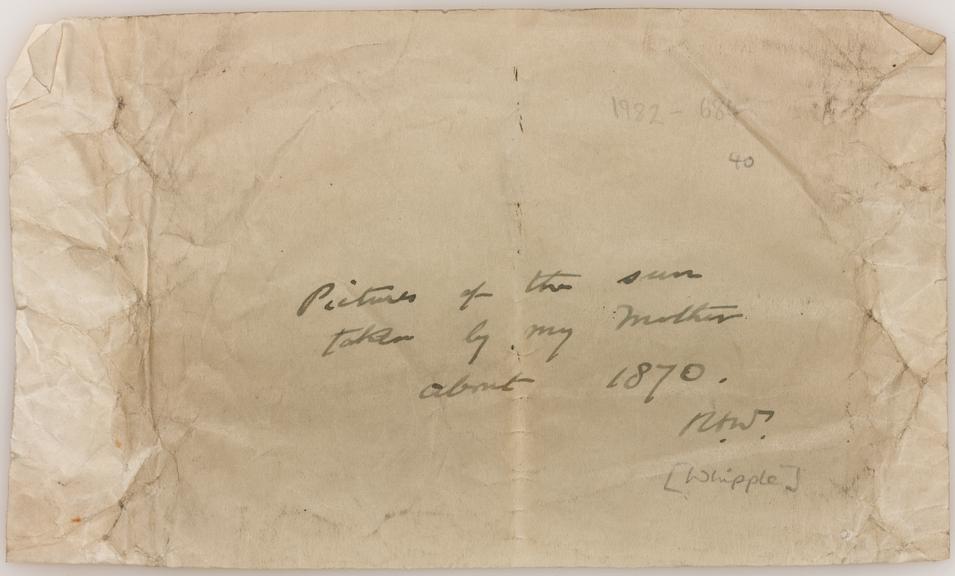 1982 - 68
40
Pictures of the sun
taken by my Mother
about 1870.
R.S.W.
[Whipple]